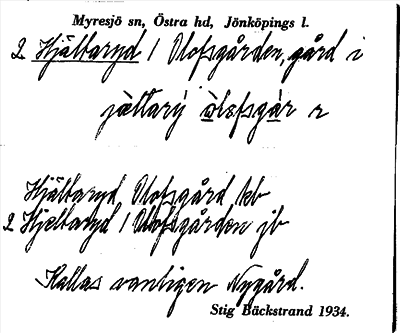 Myresjö sn, Östra hd, Jönköpings l.
2 Hjältaryd / Olofsgården, gård i
jältarý òlofsgàr r
Hjältaryd Olofsgård kb
2 Hjeltaryd / Olofsgården jb
Kallas vanligen Nygård.
Stig Bäckstrand 1934.